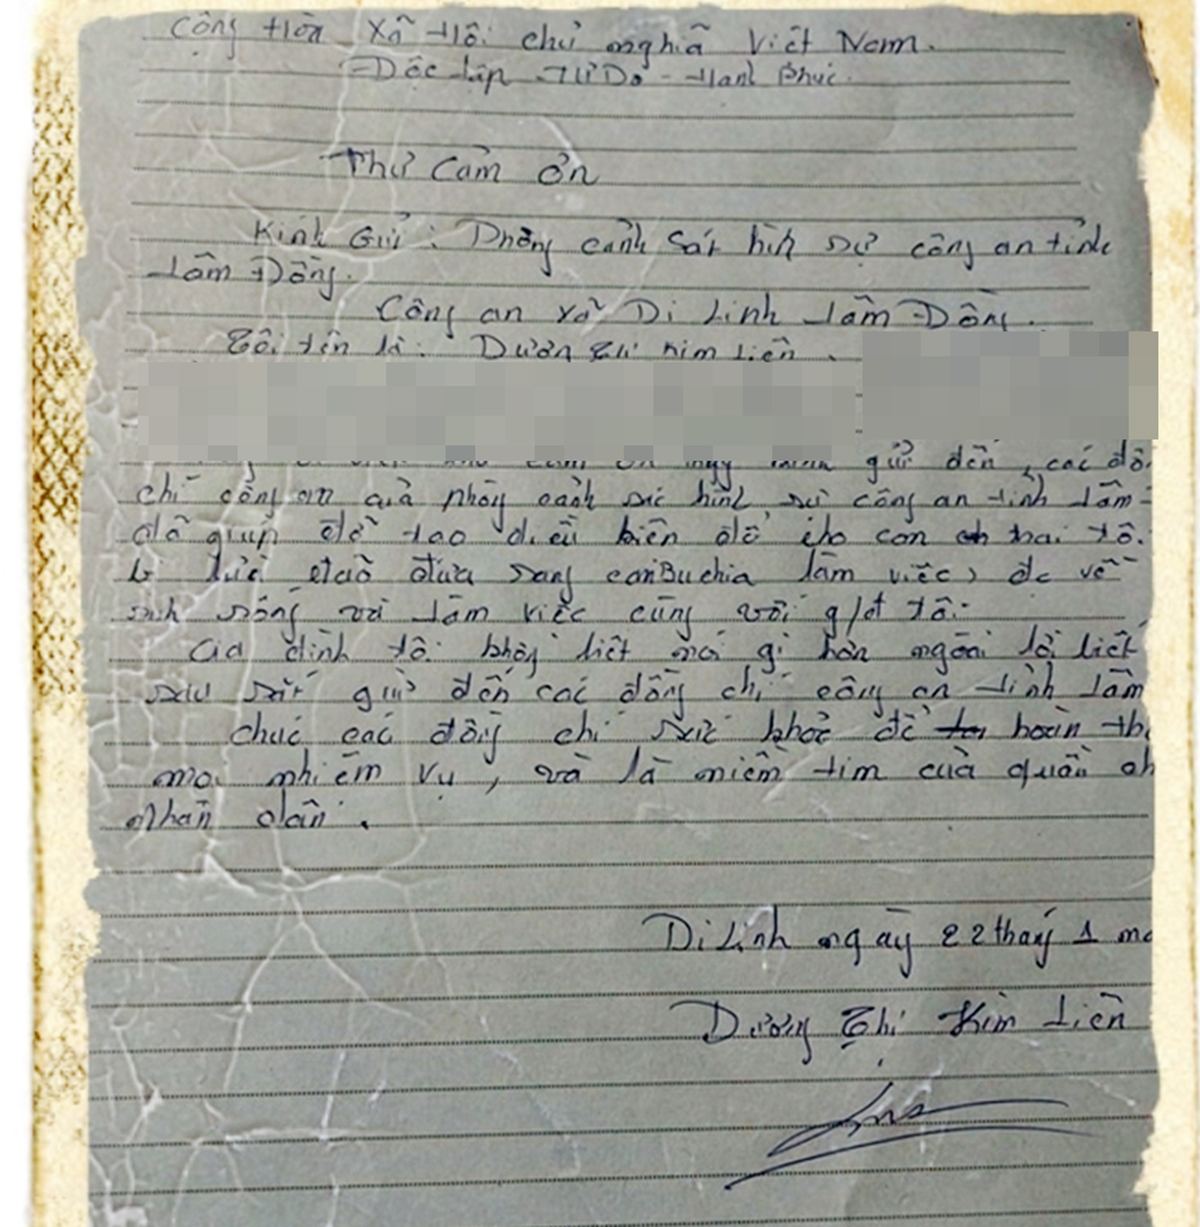 Cộng Hòa Xã Hội chủ nghĩa Việt Nam.
Độc Lập - Tự Do - Hạnh Phúc.
Thư Cảm ơn
Kính Gửi : Phòng cảnh Sát hình sự công an tỉnh
Lâm Đồng.
Công an xã Di Linh Lâm Đồng.
Tôi tên là : Dương Thị Kim Liên .
gửi đến , các đồ
chí công an của phòng cảnh sác hình sự công an tỉnh Lâm
đã giúp đở tạo điều kiện để cho con trai tôi
bị lừa đảo đưa sang canBuchia làm việc, đc về
sinh sống và làm việc cùng với g/đ tôi
Gia đình tôi không biết nói gì hơn ngoài lời biết
sâu sắc gửi đến các đồng chí công an tỉnh Lâm
chúc các đồng chí sức khỏe để hoàn th
mọi nhiệm vụ , và là niềm tim của quần ch
nhân dân .
Di Linh ngày 22 tháng 1 nă
Dương Thị Kim Liên